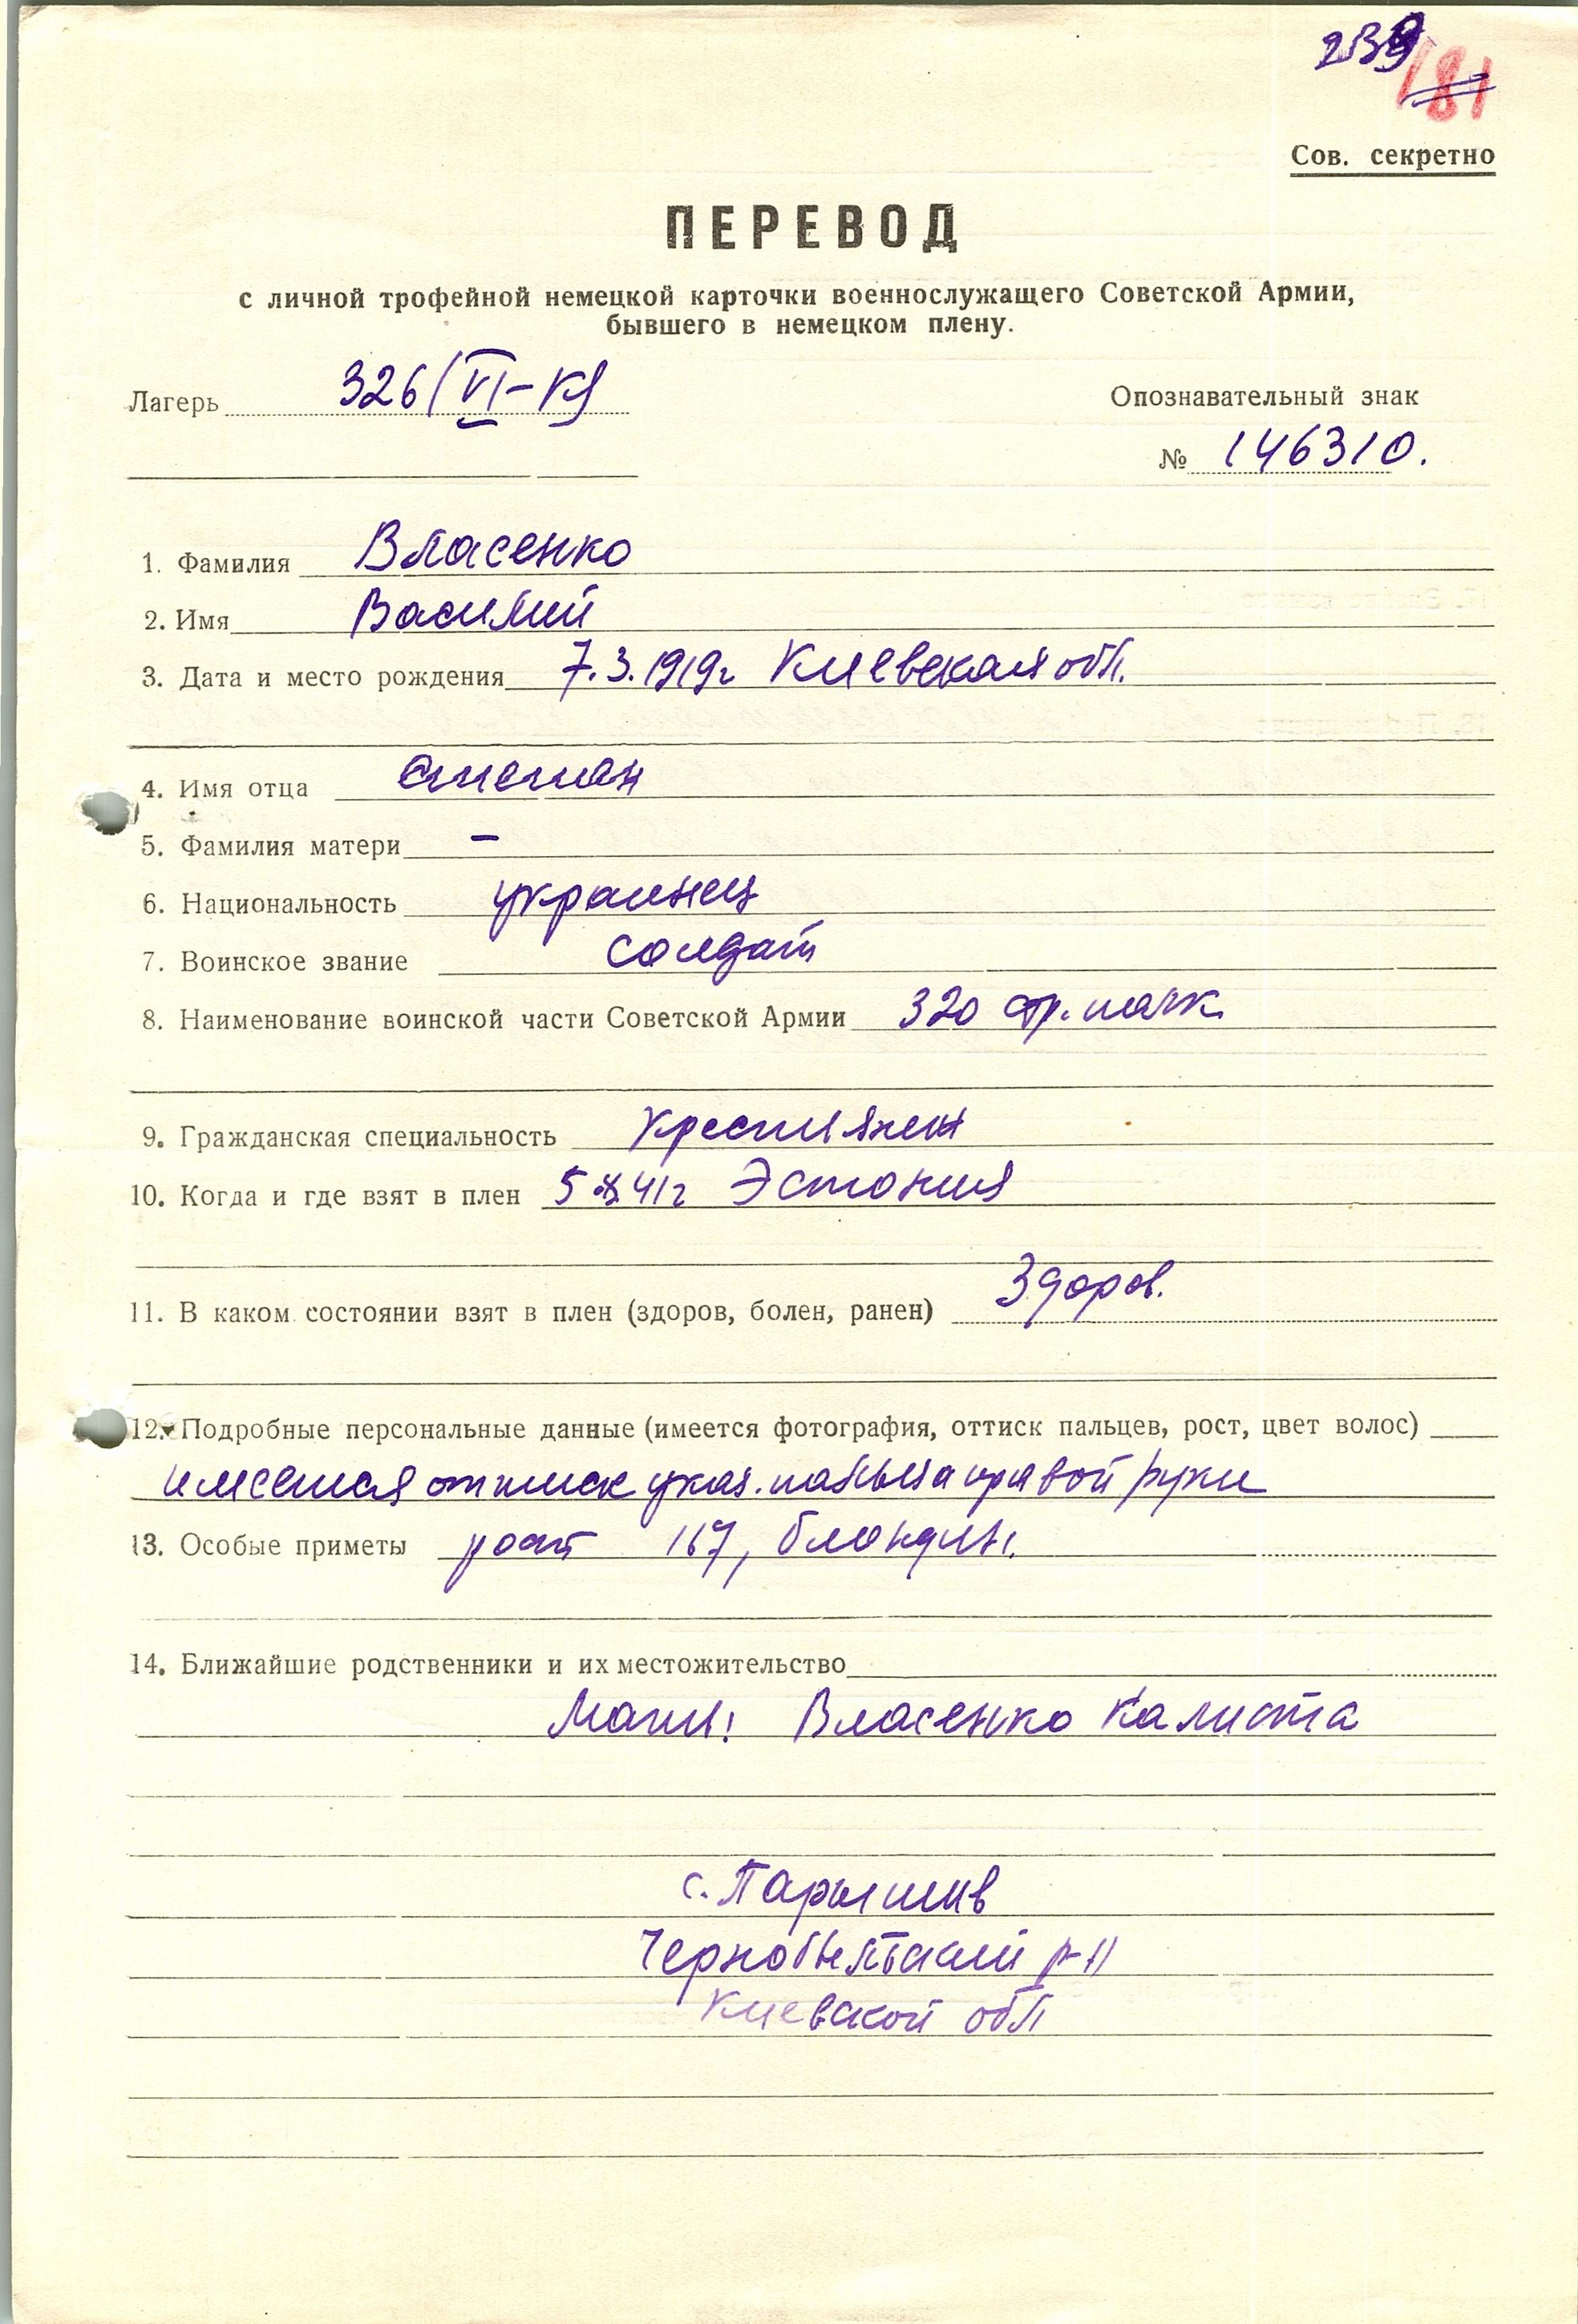 239
181
Сов. секретно
ПЕРЕВОД
с личной трофейной немецкой карточки военнослужащего Советской Армии,
бывшего в немецком плену.
Лагерь 326/VI-К
Опознавательный знак
№ 146310.
1. Фамилия Власенко
2. Имя Василий
3. Дата и место рождения 7.3.1919г Киевская обл.
4. Имя отца Степан
5. Фамилия матери –
6. Национальность украинец
7. Воинское звание солдат
8. Наименование воинской части Советской Армии 320 стр. полк
9. Гражданская специальность крестьянин
10. Когда и где взят в плен 5 41г Эстония
11. В каком состоянии взят в плен (здоров, болен, ранен) Здоров.
12. Подробные персональные данные (имеется фотография, оттиск пальцев, рост, цвет волос)
имеется оттиск указ. пальца правой руки
13. Особые приметы рост 167, блондин.
14. Ближайшие родственники и их местожительство
Мать: Власенко Калиста
с. Парышив
Чернобыльский р-н
Киевской обл